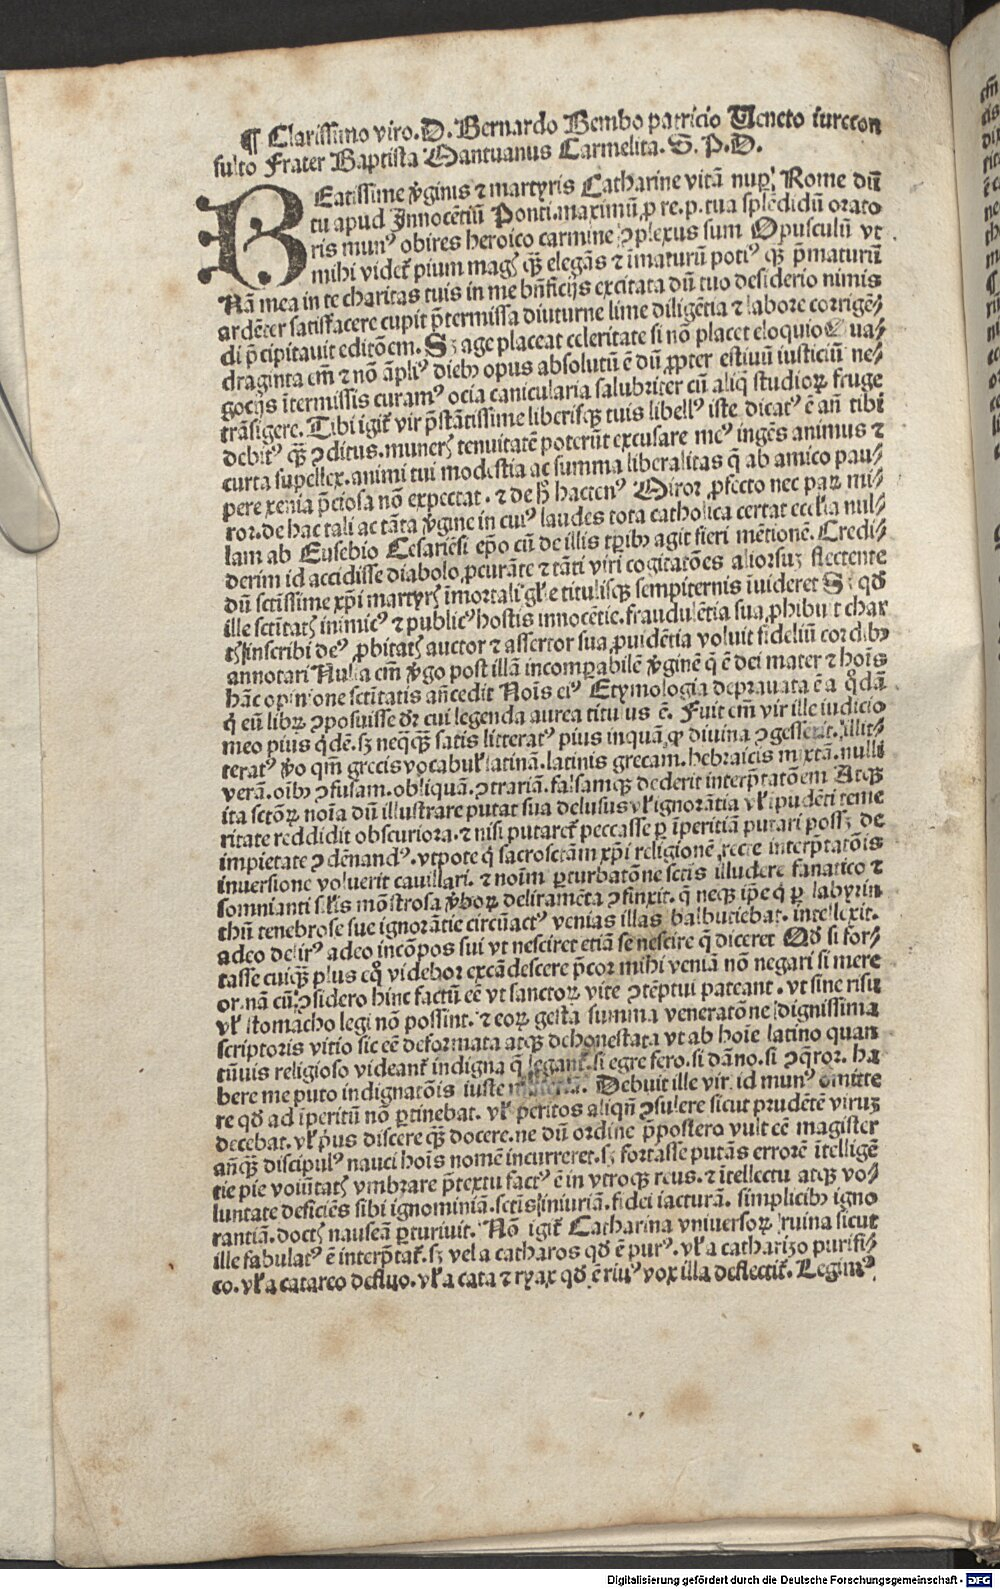 ¶ Clarissimo viro. D. Bernardo Bembo patricio Veneto iurecon
sulto Frater Baptista Mantuanus Carmelita. S. P. D.
BEatissime v̾ginis ⁊ martyris Catharine vitã nuꝑ. Rome dũ
tu apud Innocẽtiũ Ponti. maximũ. ꝓ re. p. tua splẽdidũ orato
ris munꝰ obires heroico carmine ꝯplexus sum Opusculũ vt
mihi videt̃ pium magꝭ qȝ̃ elegãs ⁊ imaturũ potiꝰ qȝ̃ p̃maturũ
Nã mea in te charitas tuis in me bñficijs excitata dũ tuo desiderio nimis
ardẽter satisfacere cupit p̃termissa diuturne lime diligẽtia ⁊ labore corrigẽ⸗
di p̃cipitauit editõem. Sȝ age placeat celeritate si nõ placet eloquio Qua⸗
draginta em̃ ⁊ nõ ãpliꝰ diebꝰ opus absolutũ ẽ dũ ꝓpter estiuũ iusticiũ ne⸗
gocijs ĩtermissis curamꝰ ocia canicularia salubriter cũ aliq̃ studioꝝ fruge
trãsigere. Tibi igit̃ vir p̃stãtissime liberisqȝ tuis libellꝰ iste dicatꝰ ẽ añ tibi
debitꝰ qȝ̃ ꝯditus. munerꝭ tenuitatẽ poterũt excusare meꝰ ingẽs animus ⁊
curta supellex. animi tui modestia ac summa liberalitas q̃ ab amico pau⸗
pere xenia p̃ciosa nõ expectat. ⁊ de hꝭ hactenꝰ Miror ꝓfecto nec paꝝ mi⸗
ror. de hac tali ac tãta v̾gine in cuiꝰ laudes tota catholica certat ecclia nul⸗
lam ab Eusebio Cesariẽsi ep̃o cũ de illis tꝑibꝰ agit fieri mẽtionẽ. Credi⸗
derim id accidisse diabolo ꝓcurãte ⁊ tãti viri cogitatões aliorsuȝ flectente
dũ sctissime xp̃i martyrꝭ ĩmortali gl̃e titulisqȝ sempiternis ĩuideret Sȝ qđ
ille sctitatꝭ inimicꝰ ⁊ publicꝰ hostis innocẽtie. fraudulẽtia sua ꝓhibuit char
tꝭ inscribi deꝰ ꝓbitatꝭ auctor ⁊ assertor sua ꝓuidẽtia voluit fideliũ cordibꝰ
annotari Nulla em̃ v̾go post illã incomparabilẽ v̾ginẽ q̃ ẽ dei mater ⁊ hoĩs
hãc opinione sctitatis añcedit Noĩs eiꝰ Etymologia deprauata ẽ a qͦdã
q̃ eũ libꝝ ꝯposuisse dr̃ cui legenda aurea titulus ẽ. Fuit em̃ vir ille iudicio
meo pius qͥdẽ. sȝ neqȝqȝ̃ satis litteratꝰ pius inquã. qꝛ diuina ꝯgesserit. illit⸗
teratꝰ v̾o qm̃ grecis vocabul̃ latinã. latinis grecam. hebraicis mixtã. nulli
verã. oĩbꝰ ꝯfusam. obliquã. ꝯtrariã. falsamqȝ dederit interp̃tatõem Atqȝ
ita sctõꝝ noĩa dũ illustrare putat sua delusus vl̃ ignorãtia vl̃ ĩpudẽti teme
ritate reddidit obscuriora. ⁊ nisi putaret̃ peccasse ꝑ ĩperitiã putari possȝ de
impietate ꝯdẽnandꝰ. vtpote qͥ sacrosctãm xp̃i religionẽ recte interp̃tatõis
inuersione voluerit cauillari. ⁊ noĩm ꝑturbatõne sctis illudere fanatico ⁊
somnianti s̃lis mõstrosa v̾boꝝ deliramẽta ꝯfinxit. q̃ neqȝ ip̃e qͥ ꝑ labyrin
thũ tenebrose sue ignorãtie circũactꝰ venias illas balbutiebat. intellexit.
adeo delirꝰ adeo incõpos sui vt nesciret etiã se nescire q̃ diceret Qđ si for⸗
tasse cuiqȝ̃ plus eqͦ videbor excãdescere p̃cor mihi veniã nõ negari si mere
or. nã cũ ꝯsidero hinc factũ eẽ vt sanctoꝝ vite ꝯtẽptui pateant. vt sine risu
vl̃ stomacho legi nõ possint. ⁊ eoꝝ gesta summa veneratõne dignissima
scriptoris vitio sic eẽ deformata atqȝ dehonestata vt ab hoĩe latino quan
tũuis religioso videant̃ indigna q̃ legant̃. si egre fero. si dãno. si ꝯq̃ror. ha
bere me puto indignatõis iuste materiã. Debuit ille vir id munꝰ omitte
re qđ ad ĩperitũ nõ ꝑtinebat. vl̃ peritos aliqñ ꝯsulere sicut prudẽtẽ viruȝ
decebat. vl̃ p̃us discere qȝ̃ docere. ne dũ ordine p̃postero vult eẽ magister
añqȝ̃ discipulꝰ nauci hoĩs nomẽ incurreret. sȝ fortasse putãs errorẽ ĩtelligẽ
tie pie volũtatꝭ vmbrare p̃textu factꝰ ẽ in vtroqȝ reus. ⁊ ĩtellectu atqȝ vo⸗
luntate deficiẽs sibi ignominiã. sctis iniuriã. fidei iacturã. simplicibꝰ igno
rantiã. doctꝭ nauseã ꝑturiuit. Nõ igit̃ Catharina vniuersoꝝ ruina sicut
ille fabulatꝰ ẽ interp̃tat̃. sȝ vel a catharos qđ ẽ purꝰ. vl̃ a catharizo purifi⸗
co. vl̃ a catareo defluo. vl̃ a cata ⁊ ryax qđ ẽ riuꝰ vox illa deflectit̃. Legimꝰ
Digitalisierung gefördert durch die Deutsche Forschungsgemeinschaft - DFG